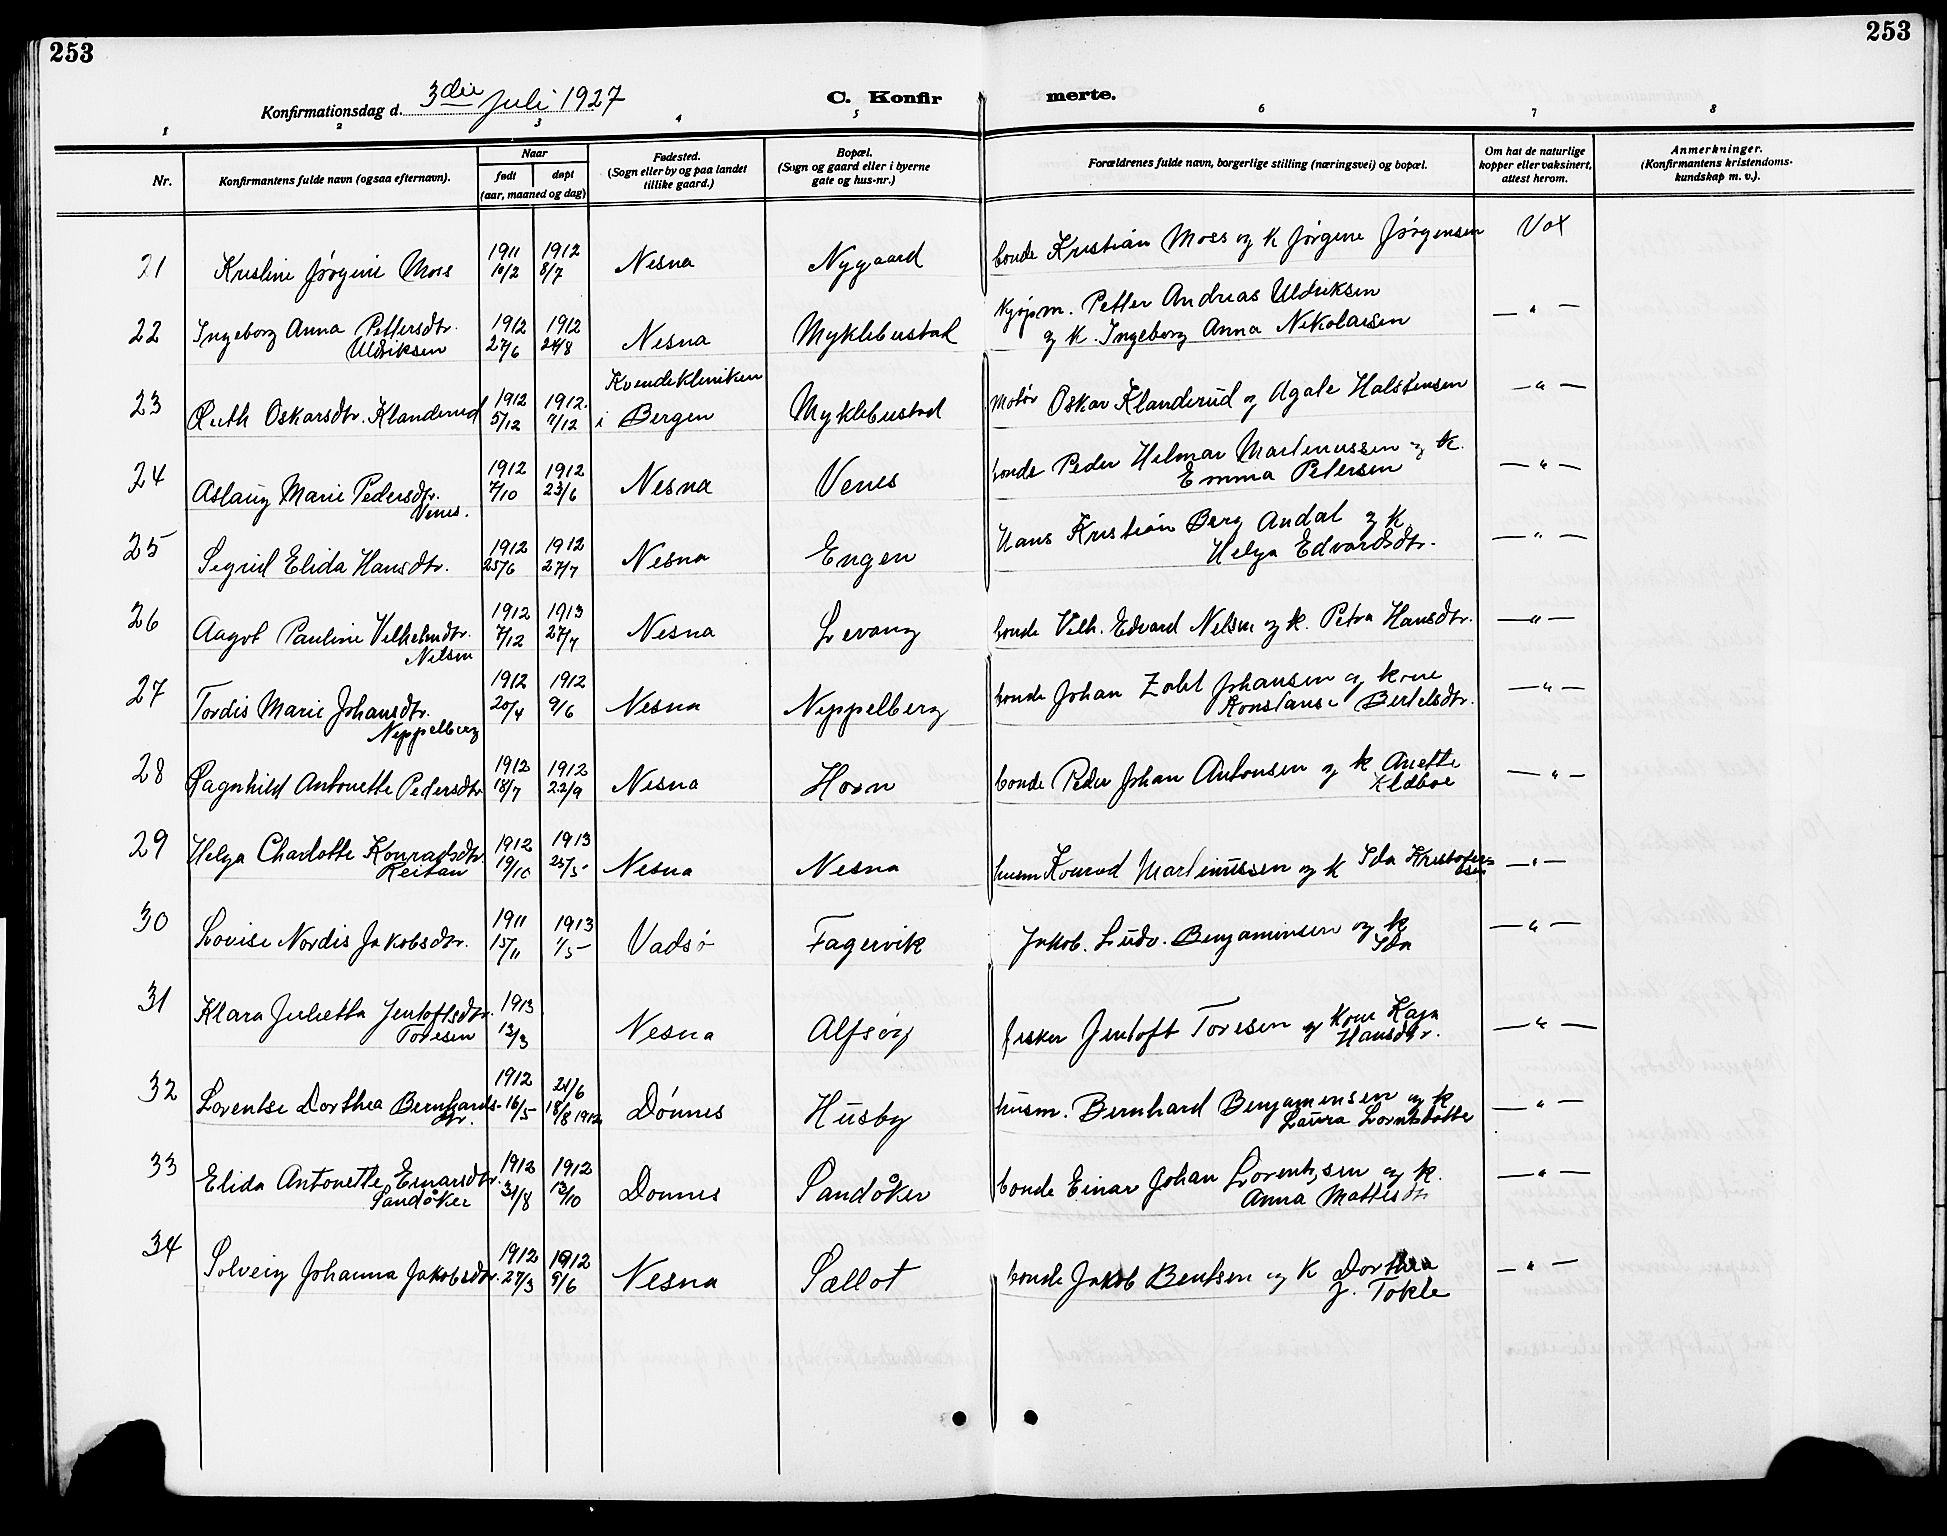 253
253
Konfirmationsdag d. 3die Juli 1927
C. Konfir merte.
1 2 3 4 5 6 7 8
Nr.
Konfirmantens fulde navn (ogsaa efternavn).
Naar
født
døpt
(aar, maaned og dag)
Fødested.
(Sogn eller by og paa landet
tillike gaard.)
Bopæl.
(Sogn og gaard eller i byerne
gate og hus-nr.)
Forældrenes fulde navn, borgerlige stilling (næringsvei) og bopæl.
Om hat de naturlige
kopper eller vaksinert,
attest herom.
Anmerkninger.
(Konfirmantens kristendoms-
kundskap m. v.).
21 Kristine Jørgine Moss 1911 10/2 1912 8/7 Nesna Nygaard bonde Kristian Moss og k Jørgine Jørgensen Vax
22 Ingeborg Anna Pettersdtr. Uldriksen 1912 27/6 1912 24/8 Nesna Myklebustad Kjøpm. Petter Andreas Uldriksen
og k. Ingeborg Anna Nikolaisen — " —
23 Ruth Oskarsdtr. Klanderud 1912 5/12 1912. 9/12 Kvindekliniken
i Bergen Myklebustad Motør Oskar Klanderud og Agate Halstensen — " —
24 Aslaug Marie Pedersdtr. Venes. 1912 7/10 1912 23/6 Nesna Venes bonde Peder Helmar Martinussen og k.
Emma Petersen — " —
25 Sigrid Elida Hansdtr. 1912 25/6 1912 27/7 Nesna Engen Hans Kristian Berg Andal og k.
Helga Edvardsdtr. — " —
26 Aagot Pauline Vilhelmdtr. Nilsen 1912 7/12 1913 27/7 Nesna Levang bonde Vilh. Edvard Nilsen og k. Petra Hansdtr. — " —
27 Tordis Marie Johansdtr. Neppelberg 1912 20/4 1912 9/6 Nesna Neppelberg bonde Johan Zahl Johansen og kone
Konstanse Bertelsdtr. — " —
28 Ragnhild Antonette Pedersdtr 1912 18/7 1912 22/9 Nesna Horn bonde Peder Johan Antonsen og k Anette
Kldboe — " —
29 Helga Charlotte Konradsdtr. Reitan 1912 19/10 1913 25/5 Nesna Nesna husm Konrad Martinussen og k Ida Kristofer=
sen — " —
30 Lovise Nordis Jakobsdtr. 1911 15/11 1913 1/5 Vadsø Fagervik Jakob. Ludv. Benjaminsen og k
Ida — " —
31 Klara Julietta Jentoftsdtr. Toresen 1913 13/3 Nesna Alfsøy fisker Jentoft Toresen og kone Kaja
Hansdtr. — " —
32 Lorentse Dorthea Bernhards-
dtr. 1912 16/5 21/6 18/8 1912 Dønnes Husby husm. Bernhard Benjaminsen og k
Laura Lorntsdatter — " —
33 Elida Antonette Einarsdtr. Sandåker 1912 31/8 1912 13/10 Dønnes Sandåker bonde Einar Johan Lorentzsen og k.
Anna Mattisdtr — " —
34 Solveig Johanna Jakobsdtr. 1912 27/3 1912 9/6 Nesna Sællot bonde Jakob Bentsen og k Dorthea
J. Tokle — " —